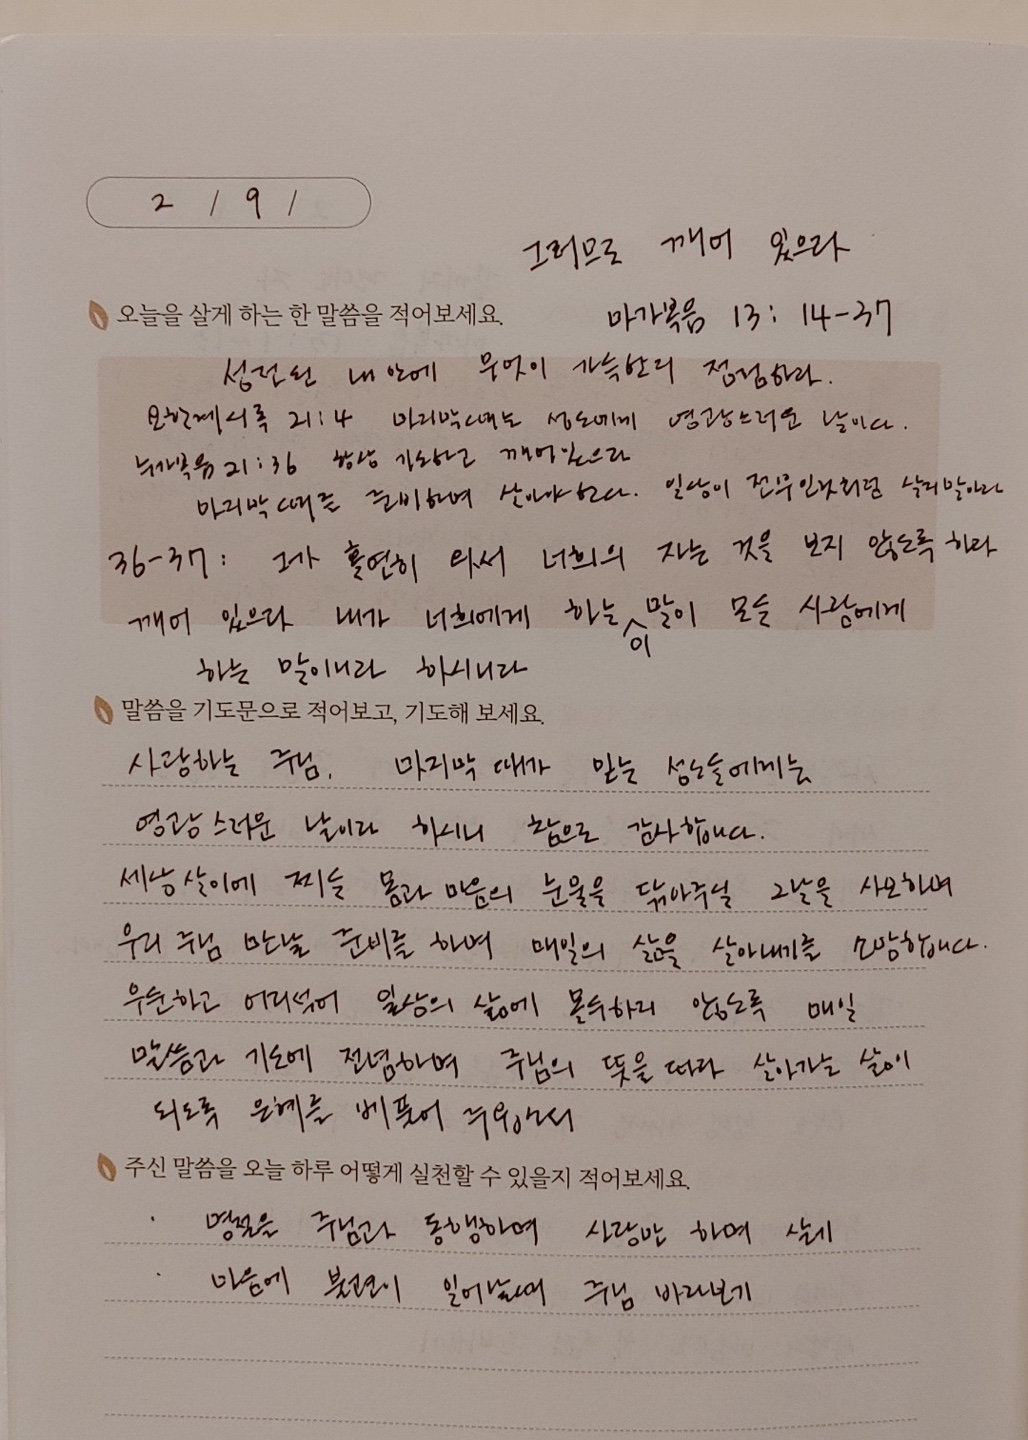 2 / 9 /
그러므로 깨어 있으라
오늘을 살게 하는 한 말씀을 적어보세요.
마가복음 13 : 14-37
성전된 내 안에 무엇이 가득한지 점검하라.
요한계시록 21:4 마지막때는 성도에게 영광스러운 날이다.
누가복음 21:36 항상 기도하고 깨어있으라
마지막때를 준비하며 살아야한다. 일상이 전부인것처럼 살지말아라
36-37: 그가 홀연히 와서 너희의 자는 것을 보지 않도록 하라
깨어 있으라 내가 너희에게 하는 이 말이 모든 사람에게
하는 말이니라 하시니라
말씀을 기도문으로 적어보고, 기도해 보세요.
사랑하는 주님, 마지막 때가 믿는 성도들에게는
영광스러운 날이라 하시니 참으로 감사합니다.
세상살이에 찌든 몸과 마음의 눈물을 닦아주실 그날을 사모하며
우리 주님 만날 준비를 하며 매일의 삶을 살아내기를 소망합니다.
우둔하고 어리석어 일상의 삶에 몰두하지 않도록 매일
말씀과 기도에 전념하며 주님의 뜻을 따라 살아가는 삶이
되도록 은혜를 베풀어 주옵소서
주신 말씀을 오늘 하루 어떻게 실천할 수 있을지 적어보세요.
· 명절을 주님과 동행하며 사랑만 하며 살기
· 마음에 불편이 일어날때 주님 바라보기